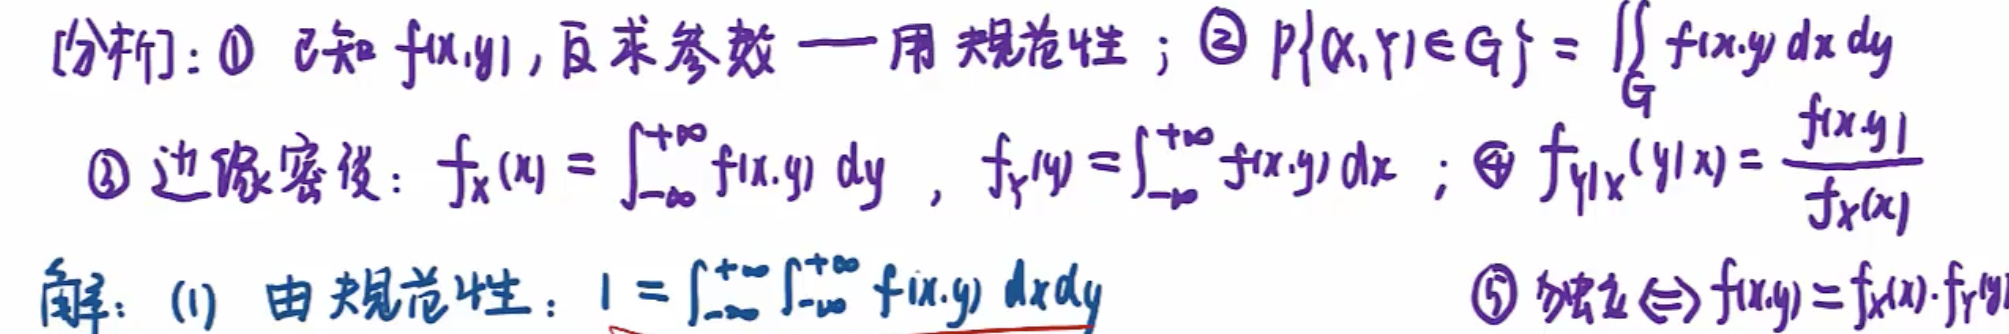 [分析]：① 已知 f(x,y)，反求参数 — 用规范性；② P{(X,Y)∈G} = ∬_G f(x,y) dx dy
③ 边缘密度：f_X(x) = ∫_{-∞}^{+∞} f(x,y) dy ，f_Y(y) = ∫_{-∞}^{+∞} f(x,y) dx ；④ f_{Y|X}(y|x) = f(x,y) / f_X(x)
解：(1) 由规范性：1 = ∫_{-∞}^{+∞} ∫_{-∞}^{+∞} f(x,y) dx dy
⑤ 独立 ⇔ f(x,y) = f_X(x)·f_Y(y)